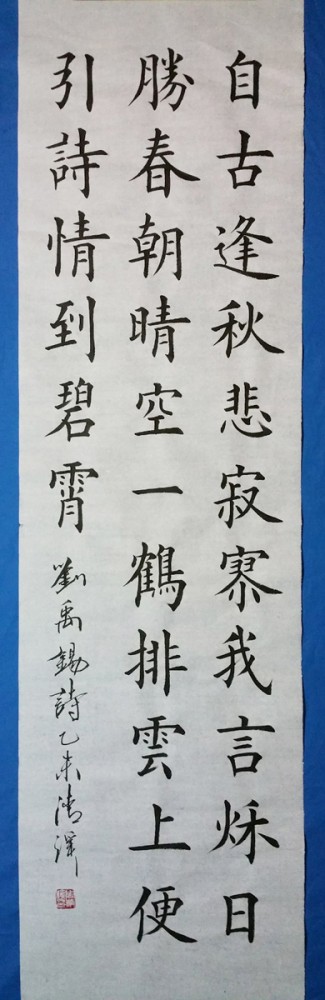 自古逢秋悲寂寥我言秌日
勝春朝晴空一鶴排雲上便
引詩情到碧霄
劉禹錫詩乙未